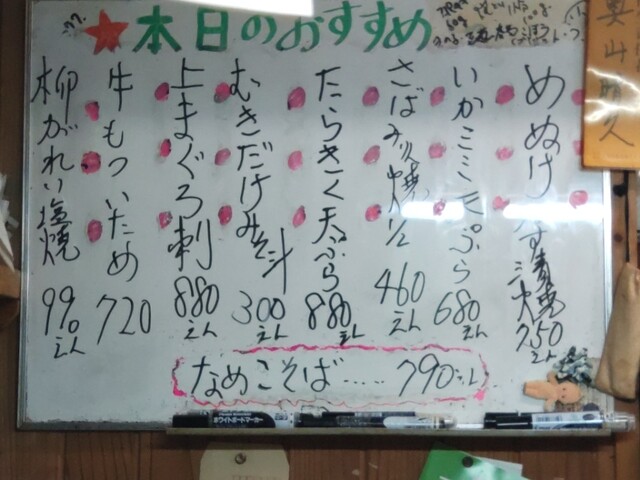 本日のおすすめ
めぬけ
750えん
いかミミ天ぷら
680えん
さばみりん焼1/2
460えん
たらきく天ぷら
880えん
むきだけみそ汁
300えん
上まぐろ刺
880えん
牛もついため
720
柳がれい塩焼
990えん
なめこそば……790えん
ホワイトボードマーカー